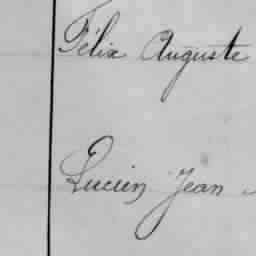 Félix Auguste
Lucien Jean